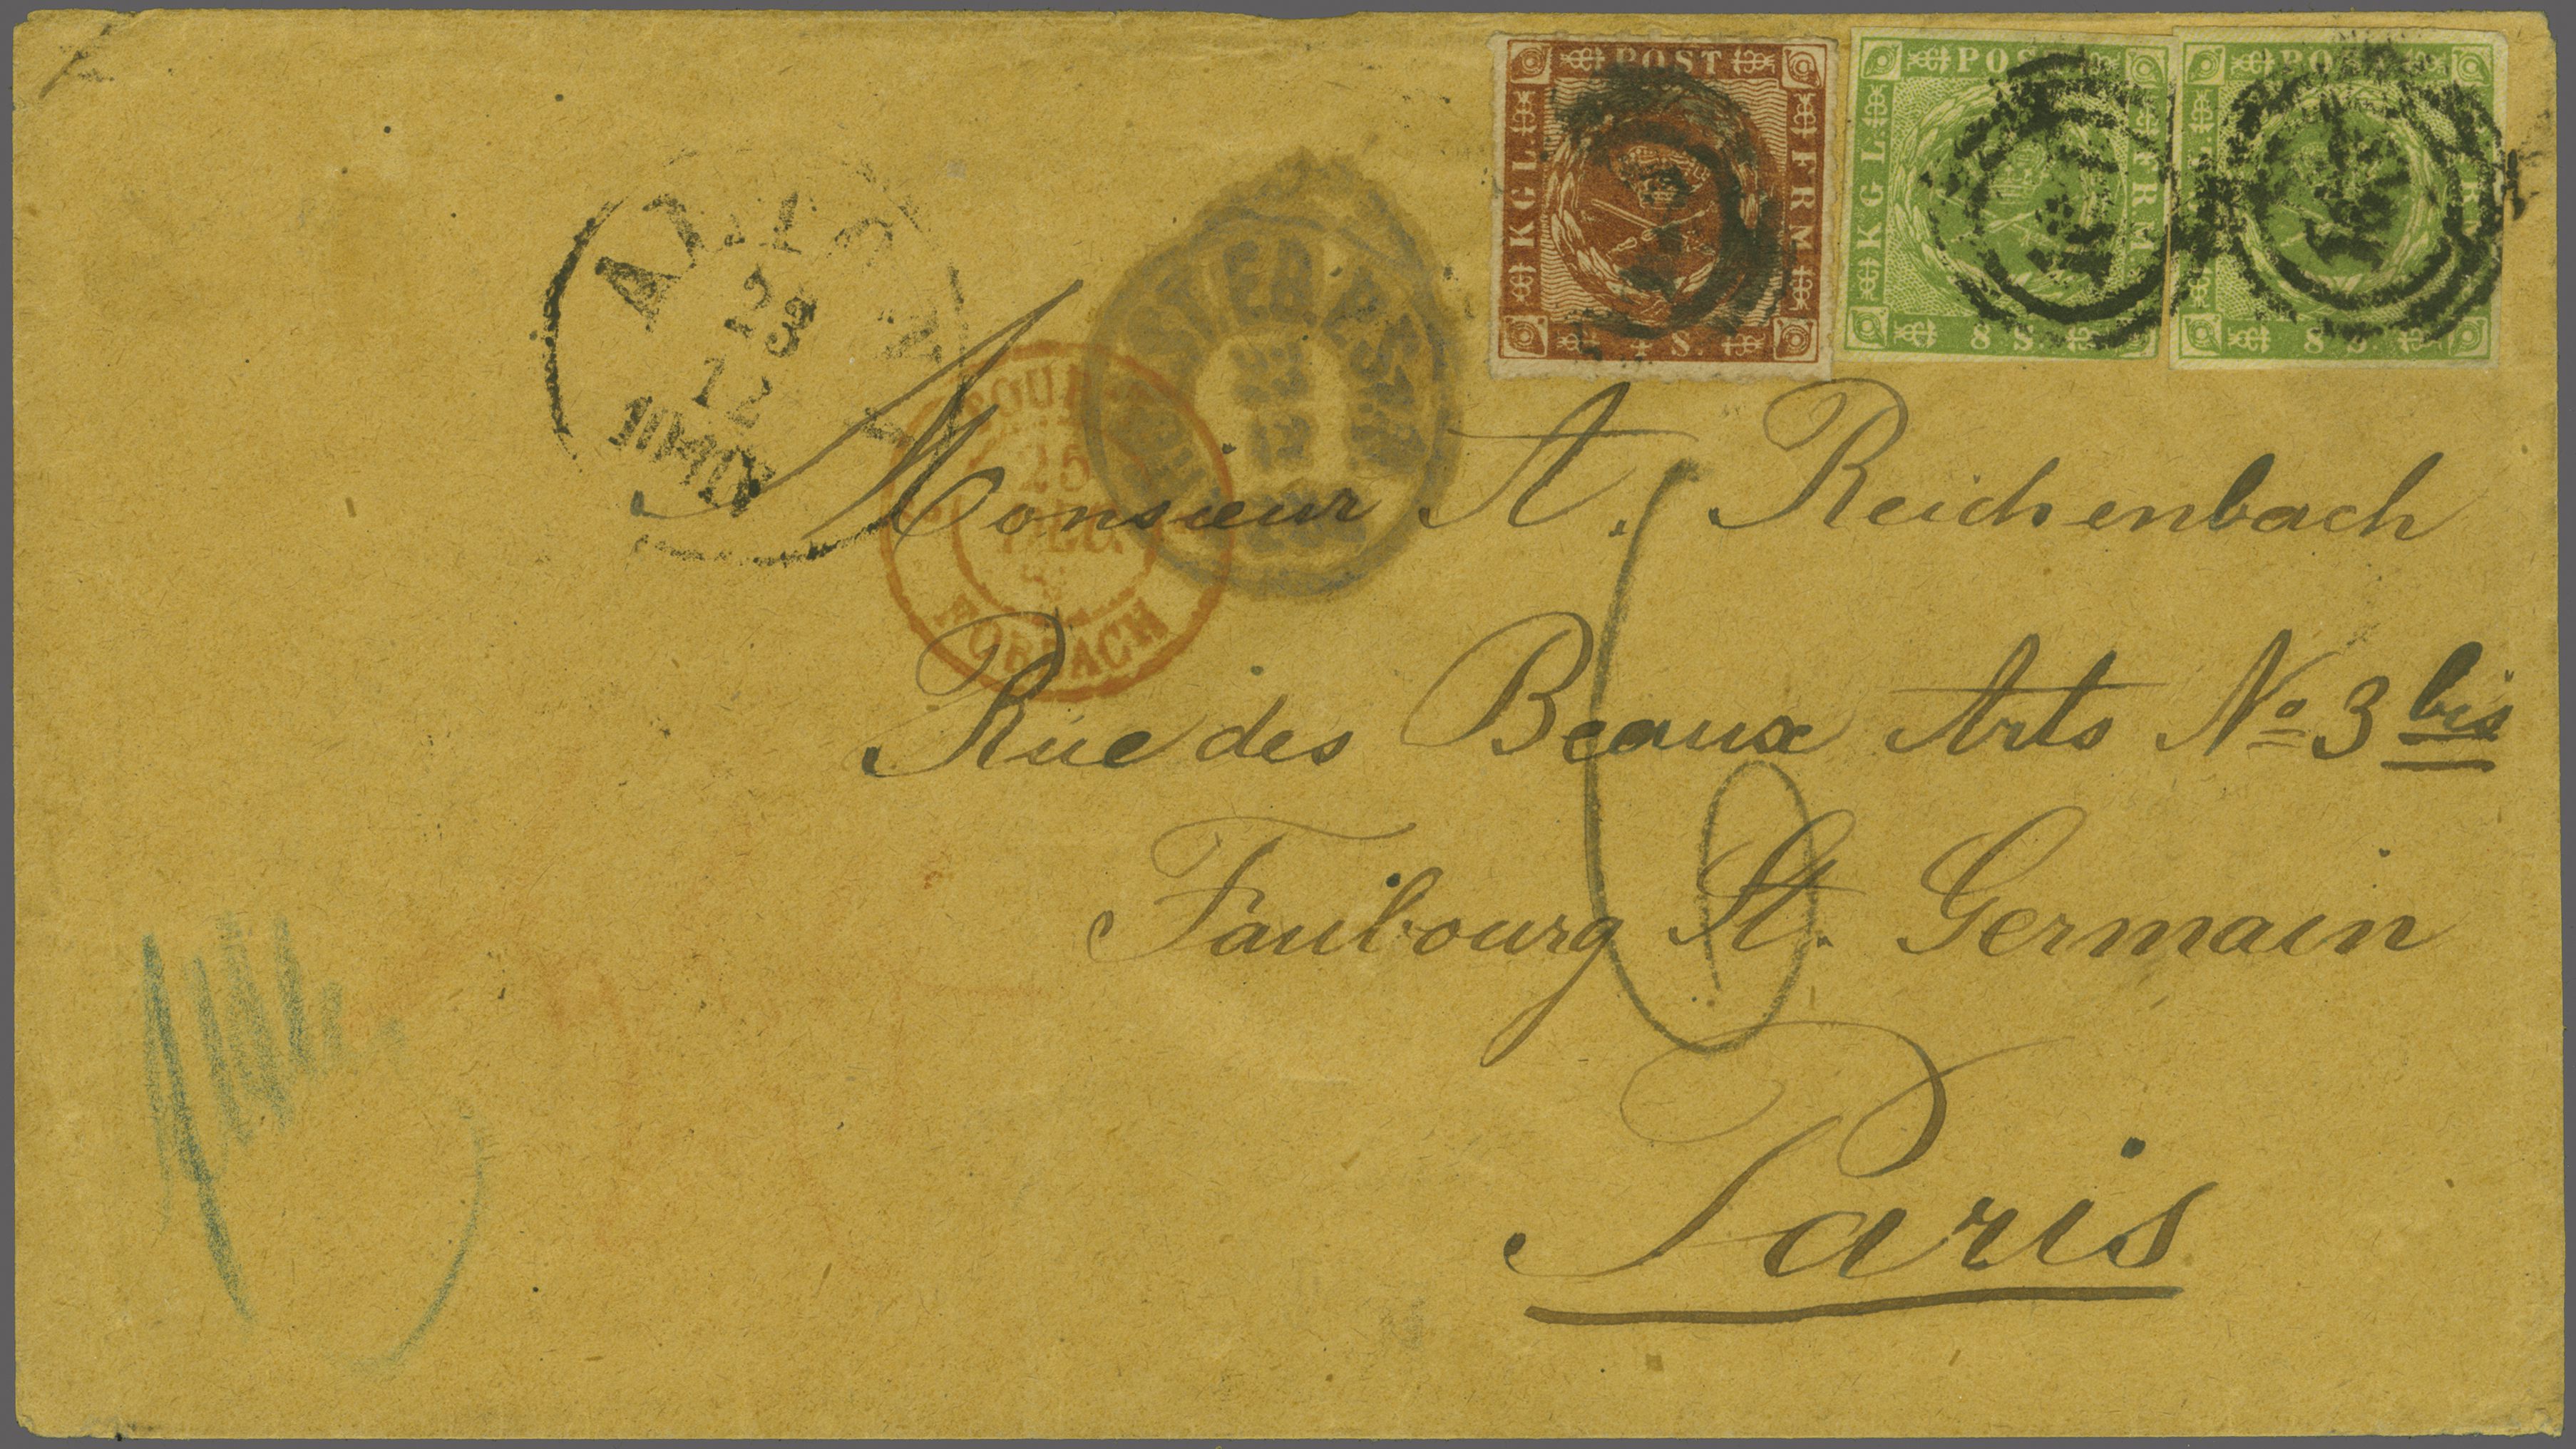 POST
KGL.
FRM
4 S.
POS
KGL.
FRM
8 S.
PO
8 S.
23
12
23
12
25
FORBACH
Monsieur A. Reichenbach
Rue des Beaux Arts No 3 bis
Faubourg St. Germain
Paris